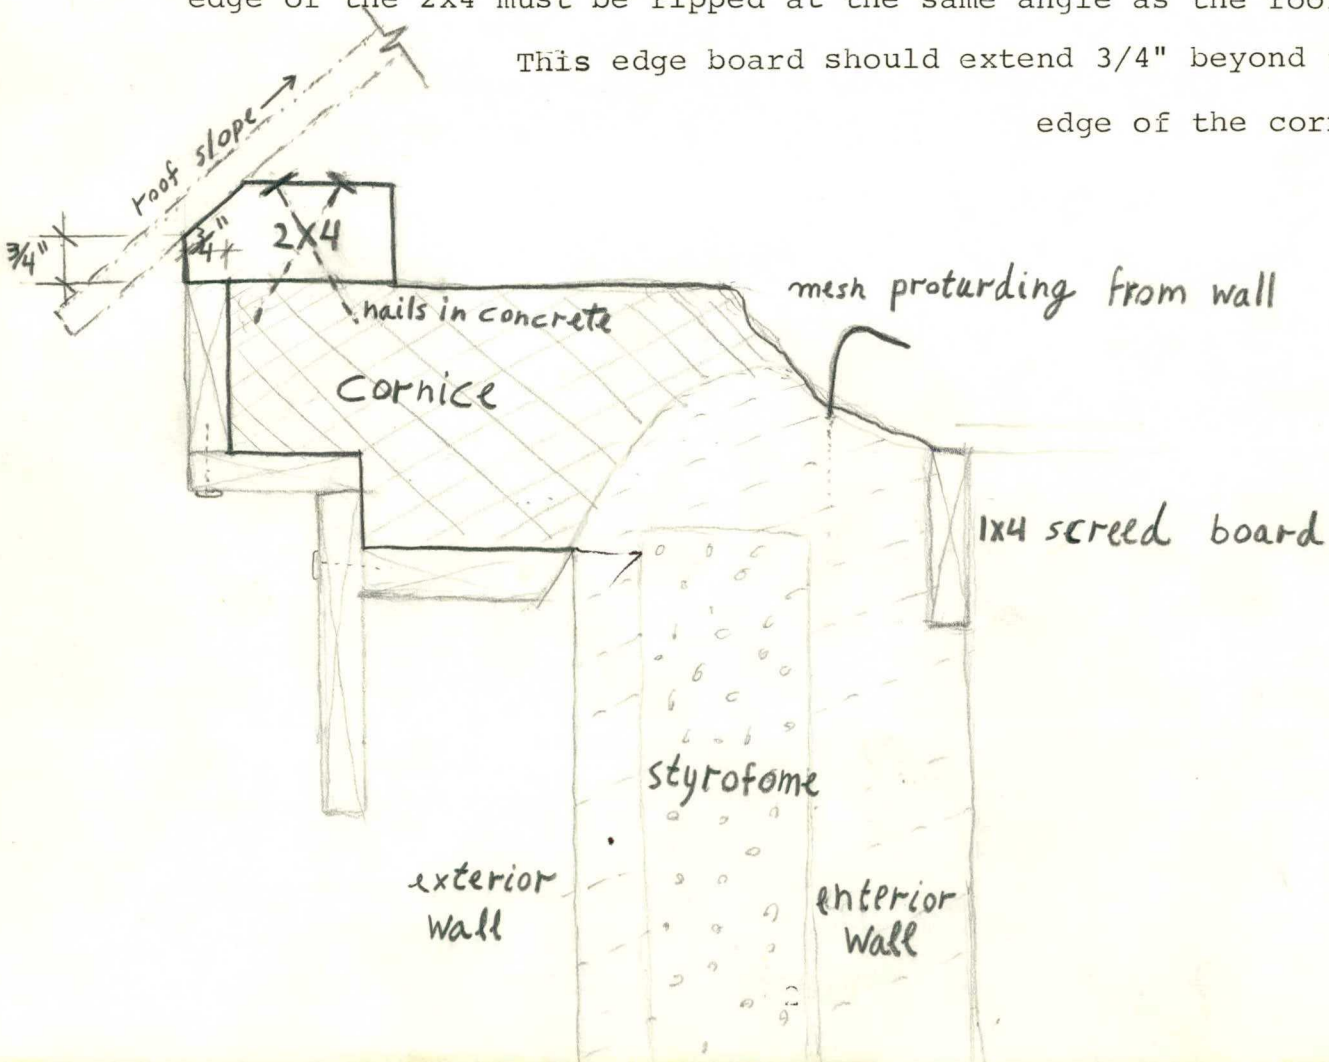 edge of the 2x4 must be ripped at the same angle as the roof
This edge board should extend 3/4" beyond
edge of the cor
roof slope
3/4"
3/4"
2X4
nails in concrete
mesh proturding from wall
Cornice
1x4 screed board
styrofome
exterior
wall
enterior
wall